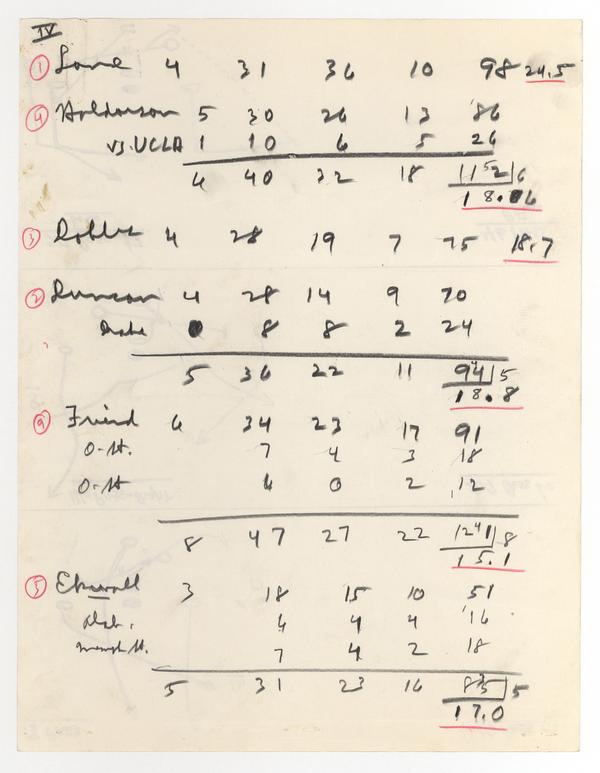 IV
1 Love 4 31 36 10 98 24.5
4 5 30 26 13 86
vs. UCLA 1 10 6 5 26
6 40 32 18 112 6
18.6
3 4 28 19 7 75 18.7
2 Duncan 4 28 14 9 70
8 8 2 24
5 36 22 11 94 5
18.8
9 Friend 6 34 23 17 91
O-St. 7 4 3 18
O-St 6 0 2 12
8 47 27 22 121 8
15.1
5 Ekwall 3 18 15 10 51
6 4 4 16
7 4 2 18
5 31 23 16 85 5
17.0